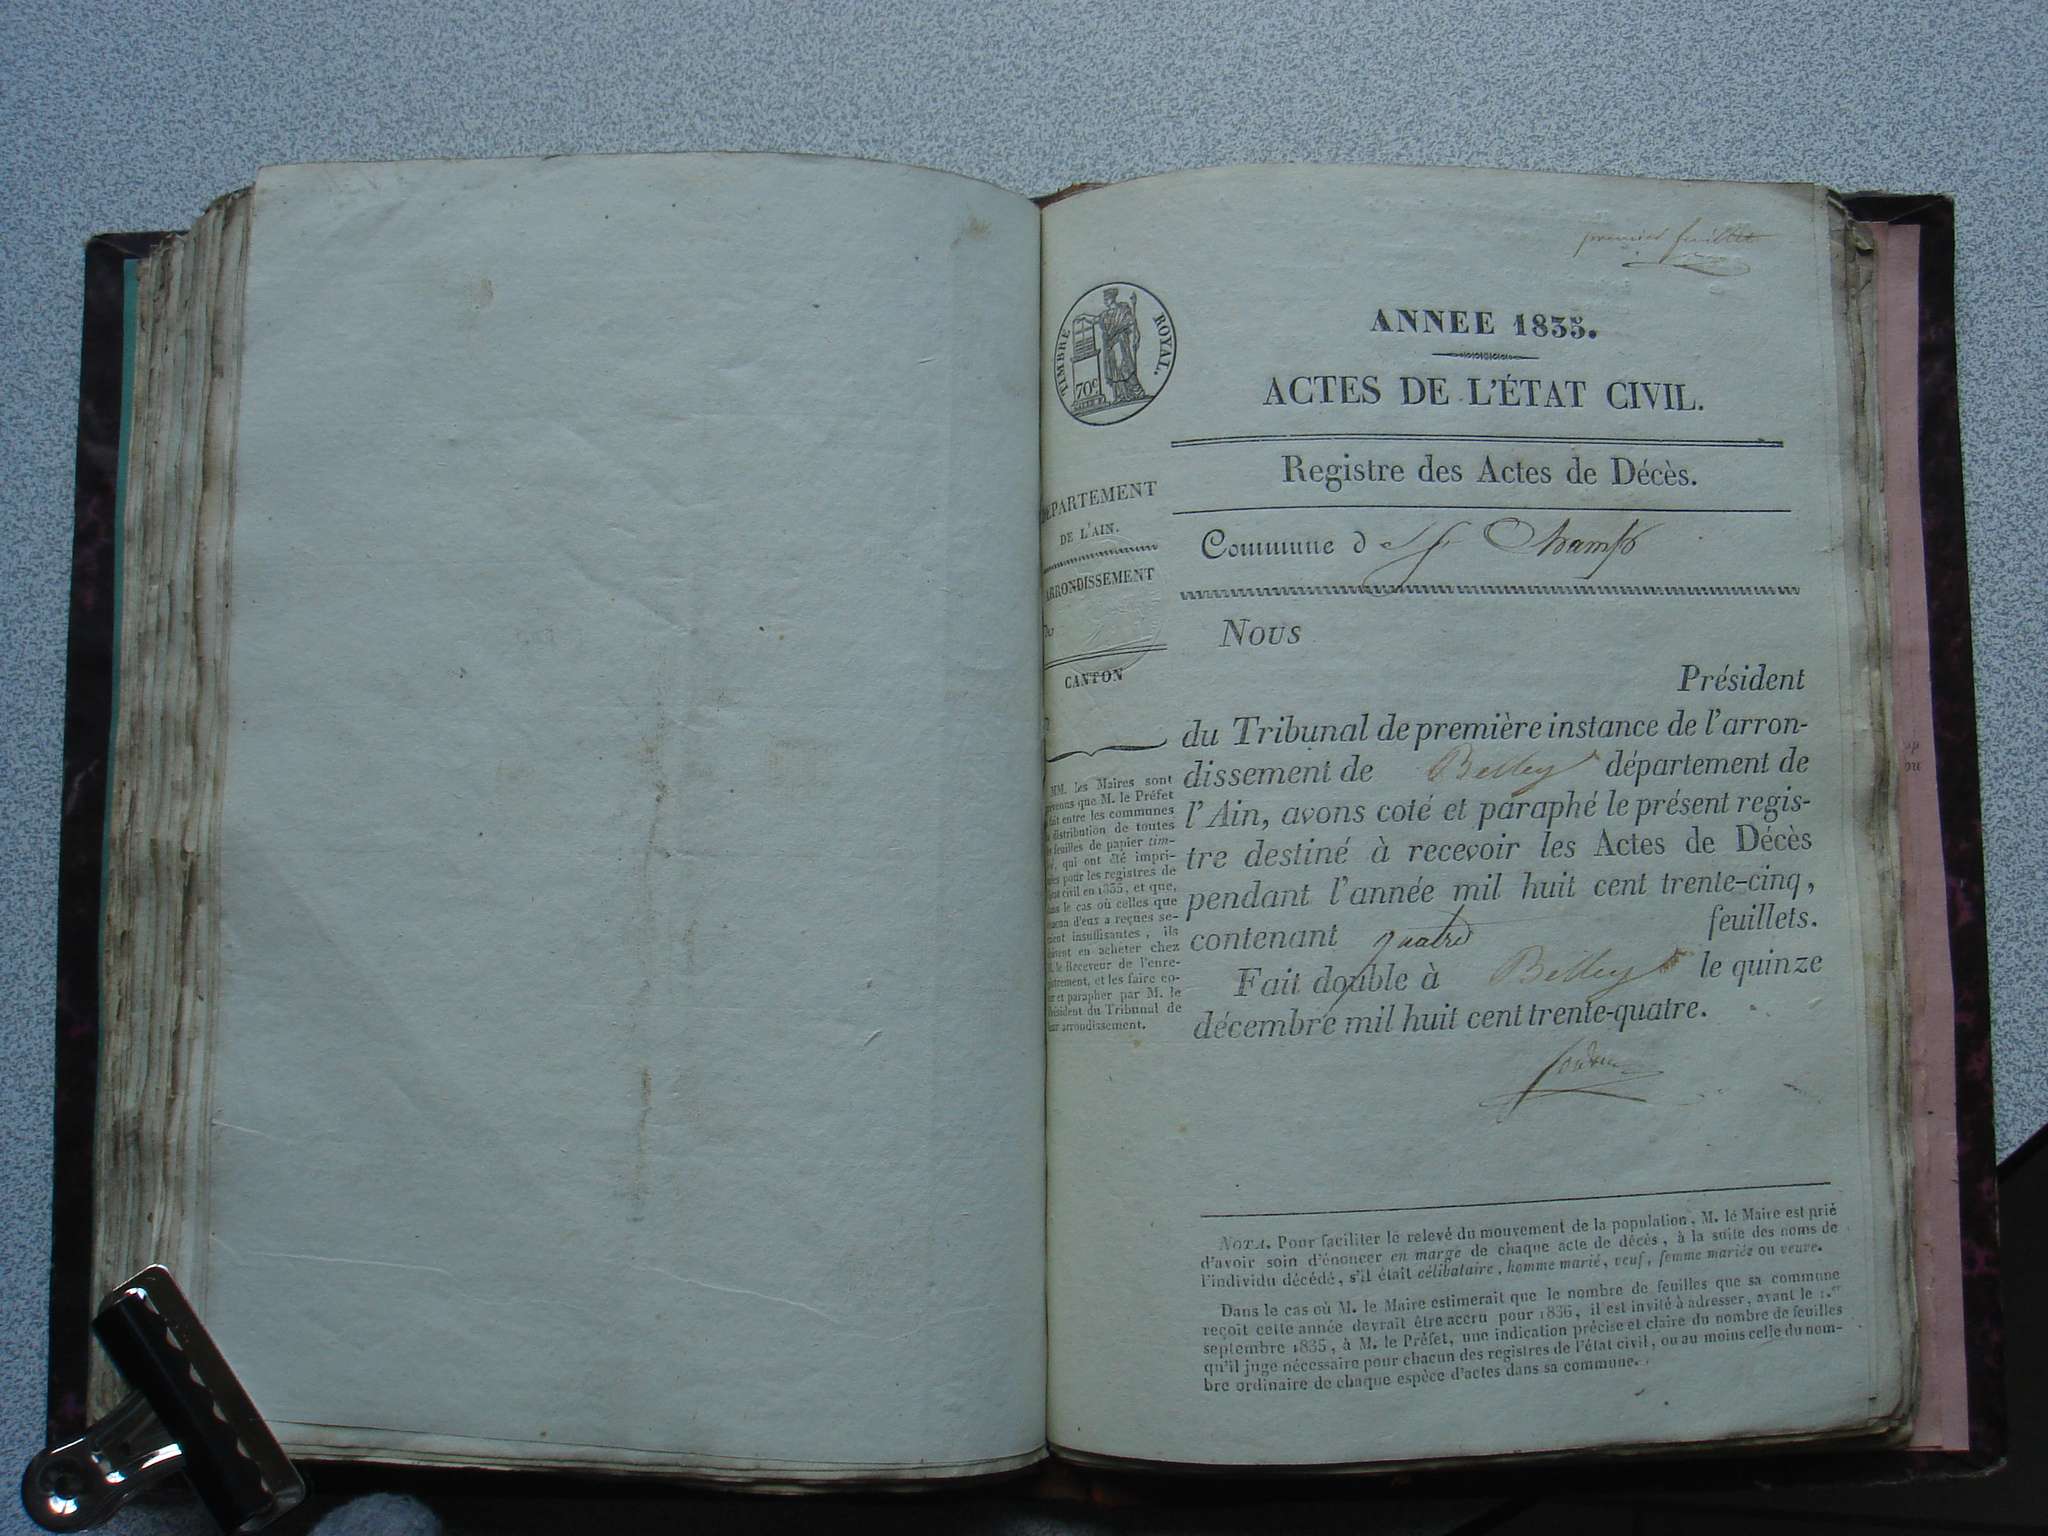 premier feuillet
TIMBRE ROYAL.
70c
ANNEE 1835.
ACTES DE L'ÉTAT CIVIL.
Registre des Actes de Décès.
Commune de St Champ
DÉPARTEMENT
DE L'AIN.
ARRONDISSEMENT
CANTON
MM. les Maires sont
que M. le Préfet
fait entre les communes
distribution de toutes
feuilles de papier tim-
, qui ont été impri-
pour les registres de
civil en 1835, et que,
le cas où celles que
d'eux a reçues se-
insuffisantes, ils
en acheter chez
le Receveur de l'enre-
gistrement, et les faire co-
et parapher par M. le
Président du Tribunal de
leur arrondissement.
Nous
Président
du Tribunal de première instance de l'arron-
dissement de Belley département de
l'Ain, avons coté et paraphé le présent regis-
tre destiné à recevoir les Actes de Décès
pendant l'année mil huit cent trente-cinq,
contenant quatre feuillets.
Fait double à Belley le quinze
décembre mil huit cent trente-quatre.
NOTA. Pour faciliter le relevé du mouvement de la population, M. le Maire est prié
d'avoir soin d'énoncer en marge de chaque acte de décès, à la suite des noms de
l'individu décédé, s'il était célibataire, homme marié, veuf, femme mariée ou veuve.
Dans le cas où M. le Maire estimerait que le nombre de feuilles que sa commune
reçoit cette année devrait être accru pour 1836, il est invité à adresser, avant le 1.er
septembre 1835, à M. le Préfet, une indication précise et claire du nombre de feuilles
qu'il juge nécessaire pour chacun des registres de l'état civil, ou au moins celle du nom-
bre ordinaire de chaque espèce d'actes dans sa commune.